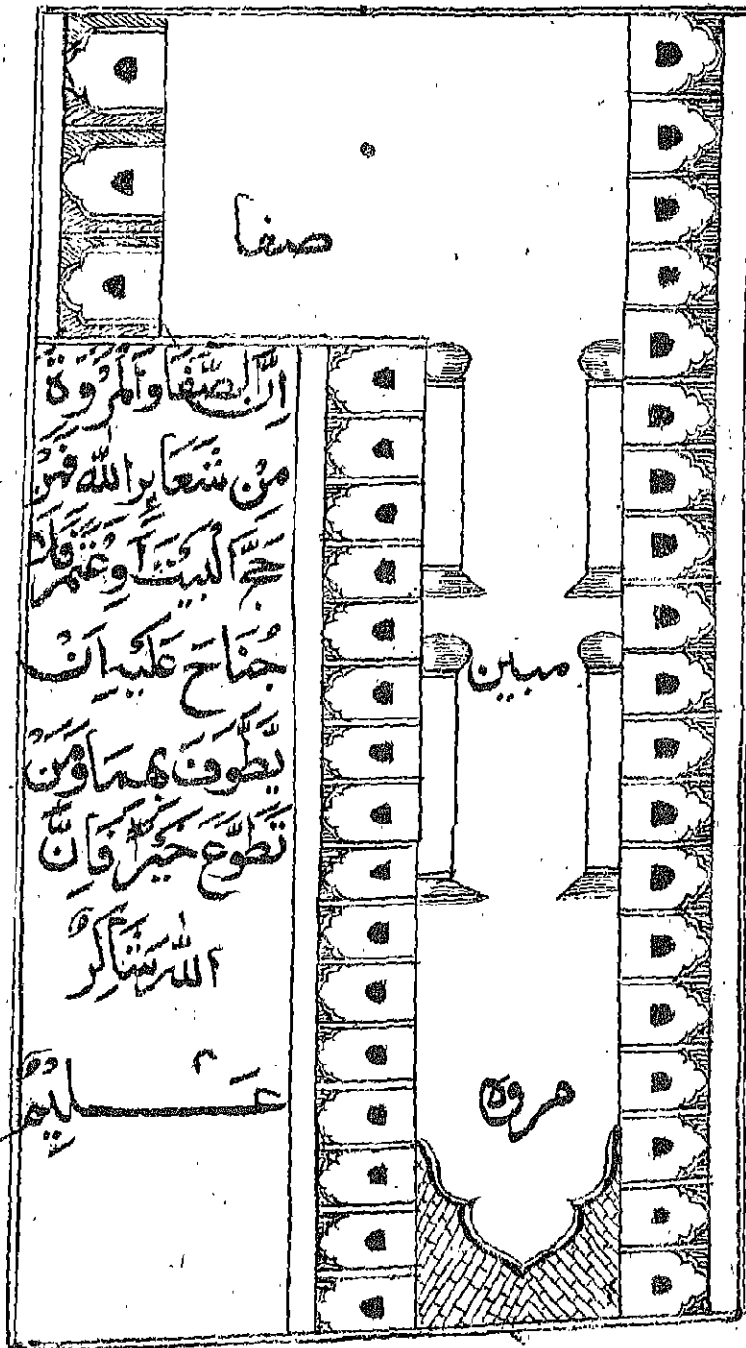 صفا
اِنَّ الصَّفَا وَالْمَرْوَةَ
مِنْ شَعَایِرِ اللّٰهِ فَمَنْ
حَجَّ الْبَیْتَ اَوِ عْتَمَرَ فَلَا
جُنَاحَ عَلَیْهِ اَنْ
یَّطَّوَّفَ بِهِمَا وَمَنْ
تَطَوَّعَ خَیْرًا فَاِنَّ
اللّٰهَ شَاکِرٌ
عَلِیْمٌ
میلین
مروه